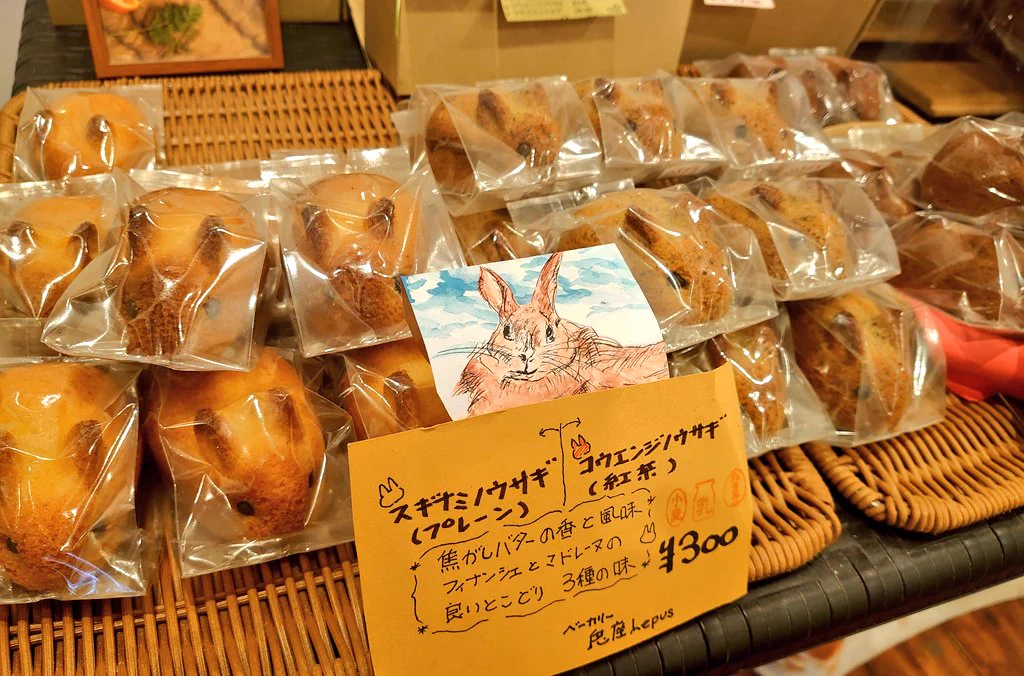 スギナミノウサギ
(プレーン)
コウエンジノウサギ
(紅茶)
焦がしバターの香と風味
フィナンシェとマドレーヌの
良いとこどり 3種の味
小麦
乳
¥300
ベーカリー
兎座Lepus